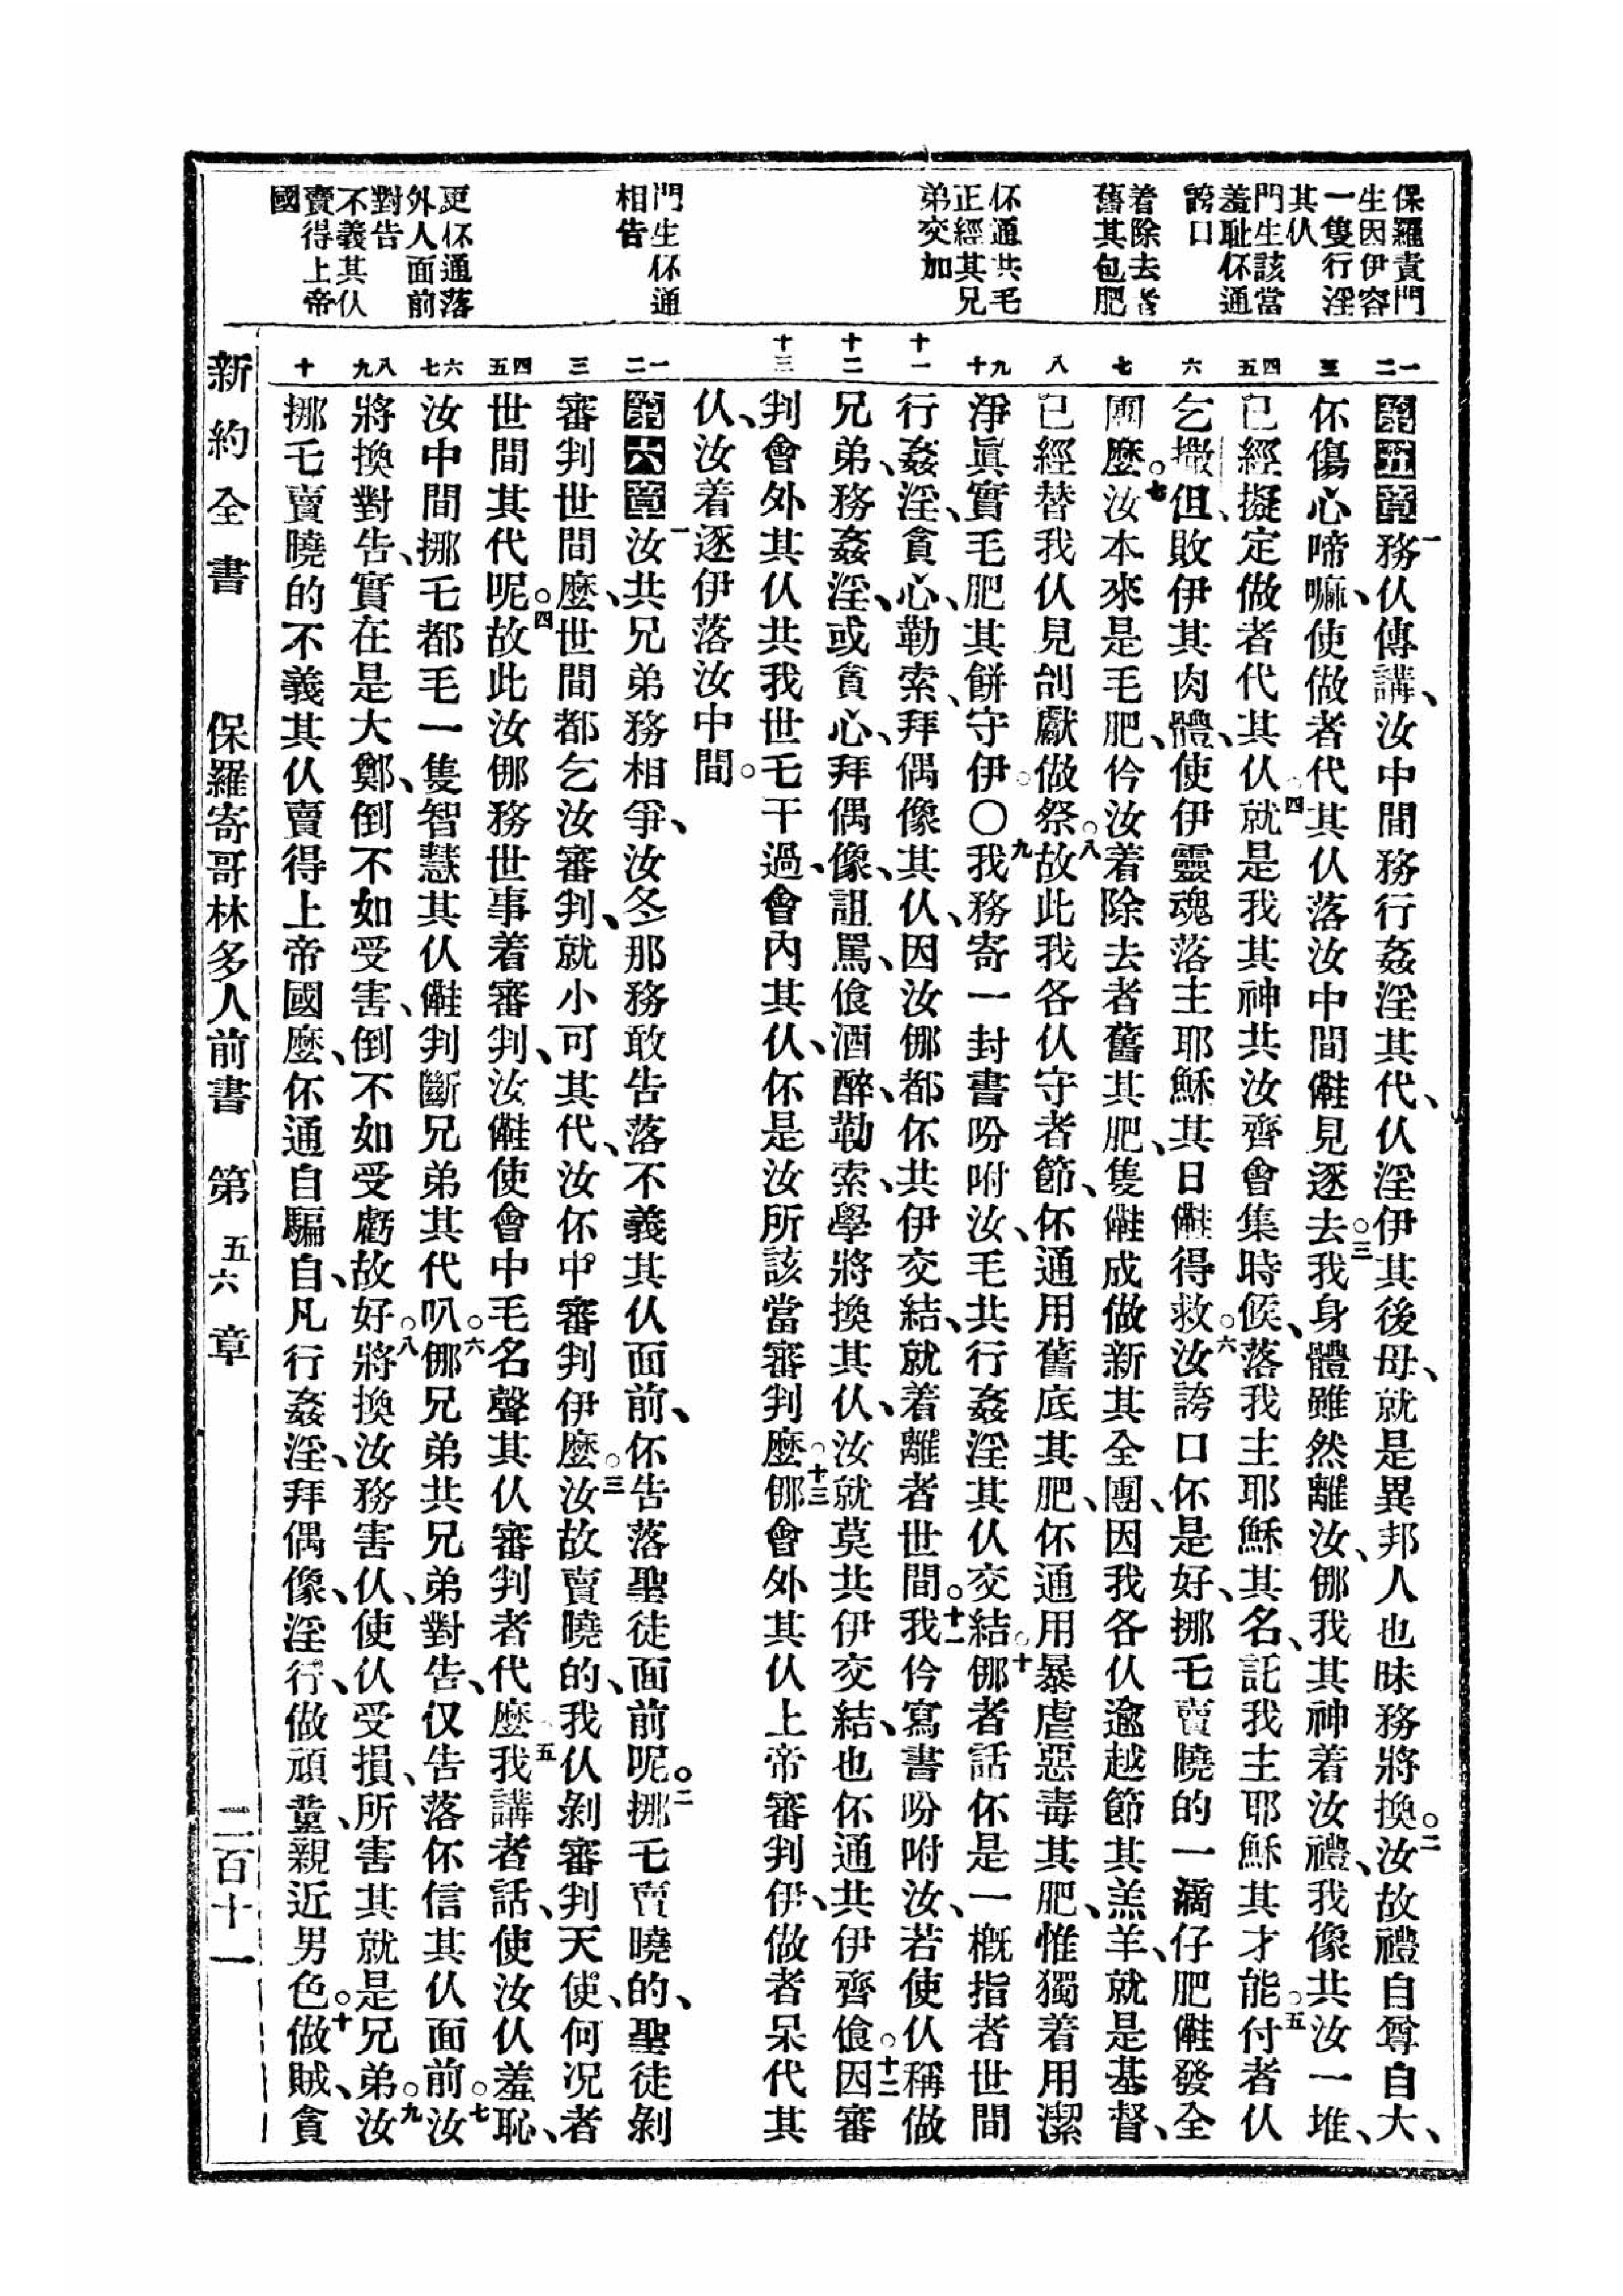 保羅責門
生因伊容
一隻行淫
其仈
門生該當
羞耻伓通
誇口
着除去者
舊其包肥
伓通共毛
正經其兄
弟交加
門生伓通
相告
更伓通落
外人面前
對告
不義其仈
賣得上帝
國
一 二 三 四 五 六 七 八 九 十 十一 十二 十三 一 二 三 四 五 六 七 八 九 十
第五章 一務仈傳講、汝中間務行姦淫其代、仈淫伊其後母、就是異邦人也昧務將換。二汝故禮自尊自大、
伓傷心啼嘛、使做者代其仈落汝中間㒰見逐去。三我身體雖然離汝、㑚我其神着汝禮、我像共汝一堆、
已經擬定做者代其仈。四就是我其神共汝齊會集時候、落我主耶穌其名、託我主耶穌其才能。五付者仈
乞撒但、敗伊其肉體、使伊靈魂落主耶穌其日㒰得救。六汝誇口伓是好、挪乇賣曉的一滴仔肥㒰發全
團麼。七汝本來是毛肥、仱汝着除去者舊其肥、隻㒰成做新其全團、因我各仈逾越節其羔羊、就是基督、
已經替我仈見刣獻做祭。八故此我各仈守者節、伓通用舊底其肥、伓通用暴虐惡毒其肥、惟獨着用潔
淨眞實毛肥其餅守伊。〇九我務寄一封書吩咐汝、毛共行姦淫其仈交結。十㑚者話伓是一概指者世間
行姦淫、貪心、勒索、拜偶像其仈、因汝㑚都伓共伊交結、就着離者世間。十一我仱寫書吩咐汝、若使仈稱做
兄弟、務姦淫、或貪心、拜偶像、詛罵、飡酒醉、勒索、學將換其仈、汝就莫共伊交結、也伓通共伊齊飡。十二因審
判會外其仈共我世乇干過、會內其仈、伓是汝所該當審判麼。十三㑚會外其仈上帝審判伊、做者呆代其
仈、汝着逐伊落汝中間。
第六章 一汝共兄弟務相爭、汝冬那務敢告落不義其仈面前、伓告落聖徒面前呢。二挪乇賣曉的、聖徒剝
審判世間麼、世間都乞汝審判、就小可其代、汝伓中審判伊麼。三汝故賣曉的、我仈剝審判天使、何况者
世間其代呢。四故此汝㑚務世事着審判、汝㒰使會中毛名聲其仈審判者代麼。五我講者話、使汝仈羞恥、
汝中間挪乇都毛一隻智慧其仈㒰判斷兄弟其代。六叭㑚兄弟共兄弟對告、仅告落伓信其仈面前。七汝
將換對告、實在是大鄭、倒不如受害、倒不如受虧。八故好將換汝務害仈、使仈受損、所害其就是兄弟。九汝
挪乇賣曉的不義其仈賣得上帝國麼、伓通自騙自、凡行姦淫、拜偶像、淫行、做頑童、親近男色。十做賊、貪
新約全書 保羅寄哥林多人前書 第五六章 二百十一